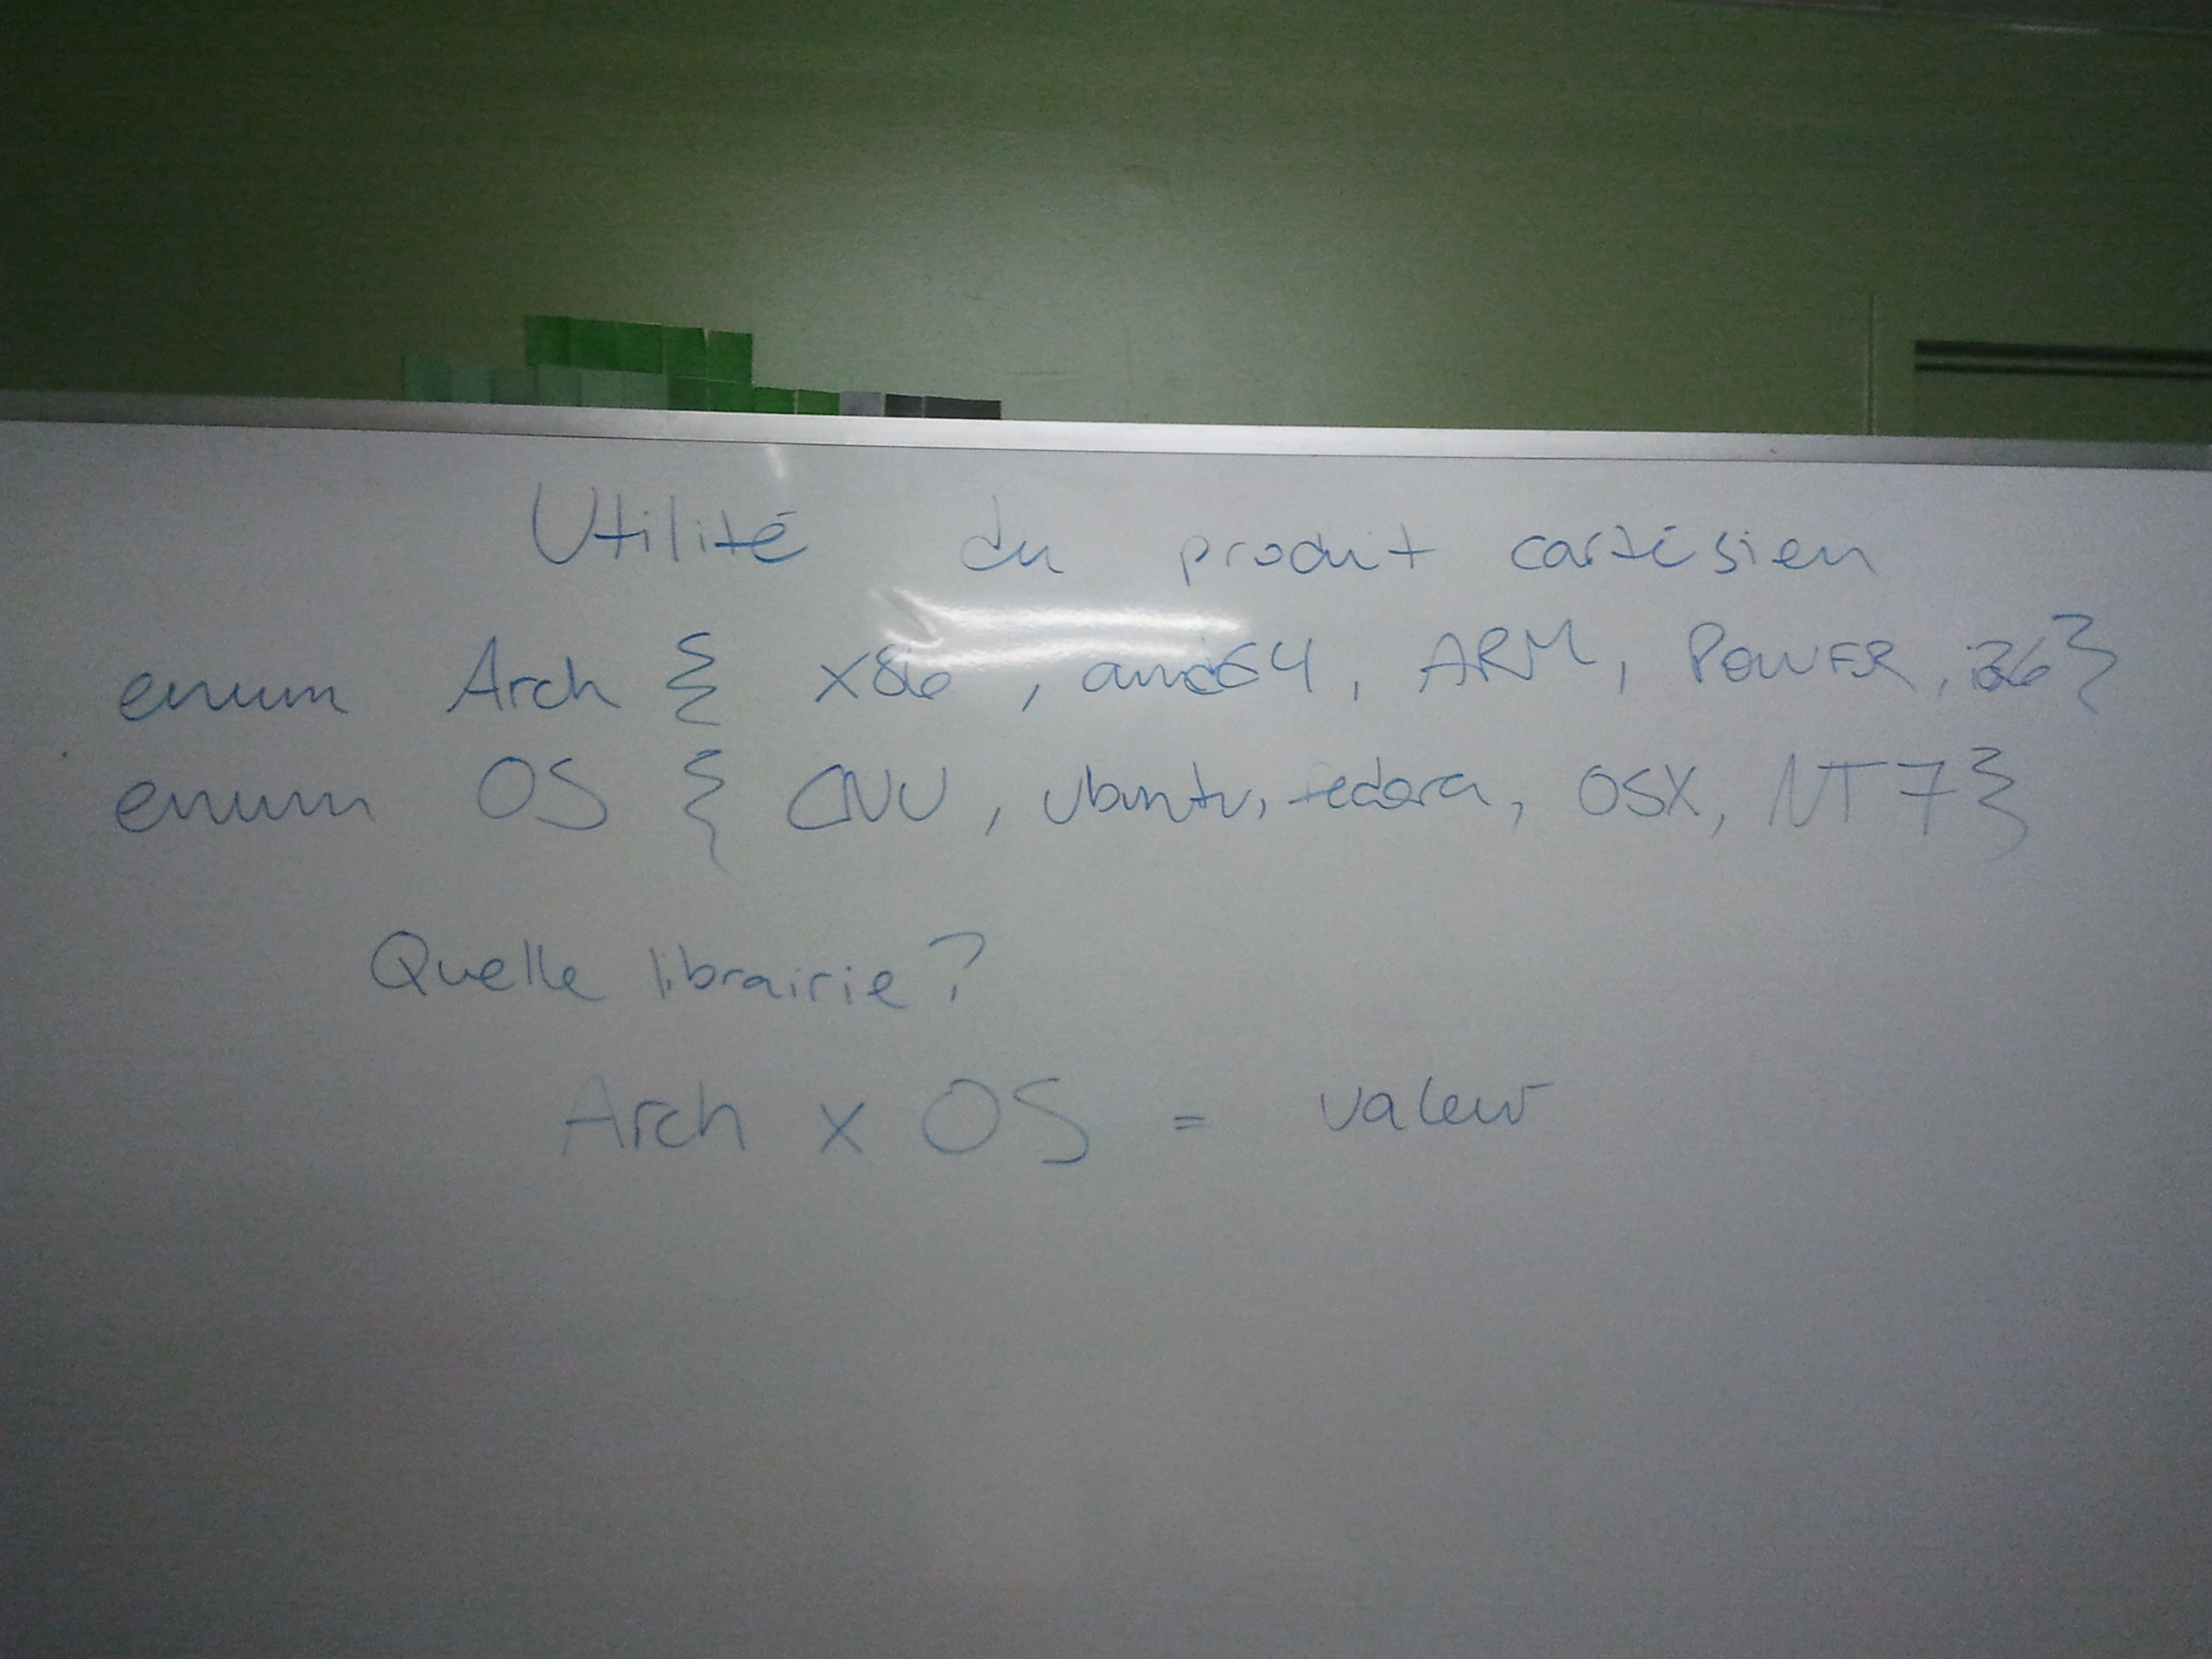 Utilité du produit cartésien
enum Arch { x86, amd64, ARM, POWER, }
enum OS { GNU, Ubuntu, fedora, OSX, NT7}
Quelle librairie?
Arch x OS = valeur